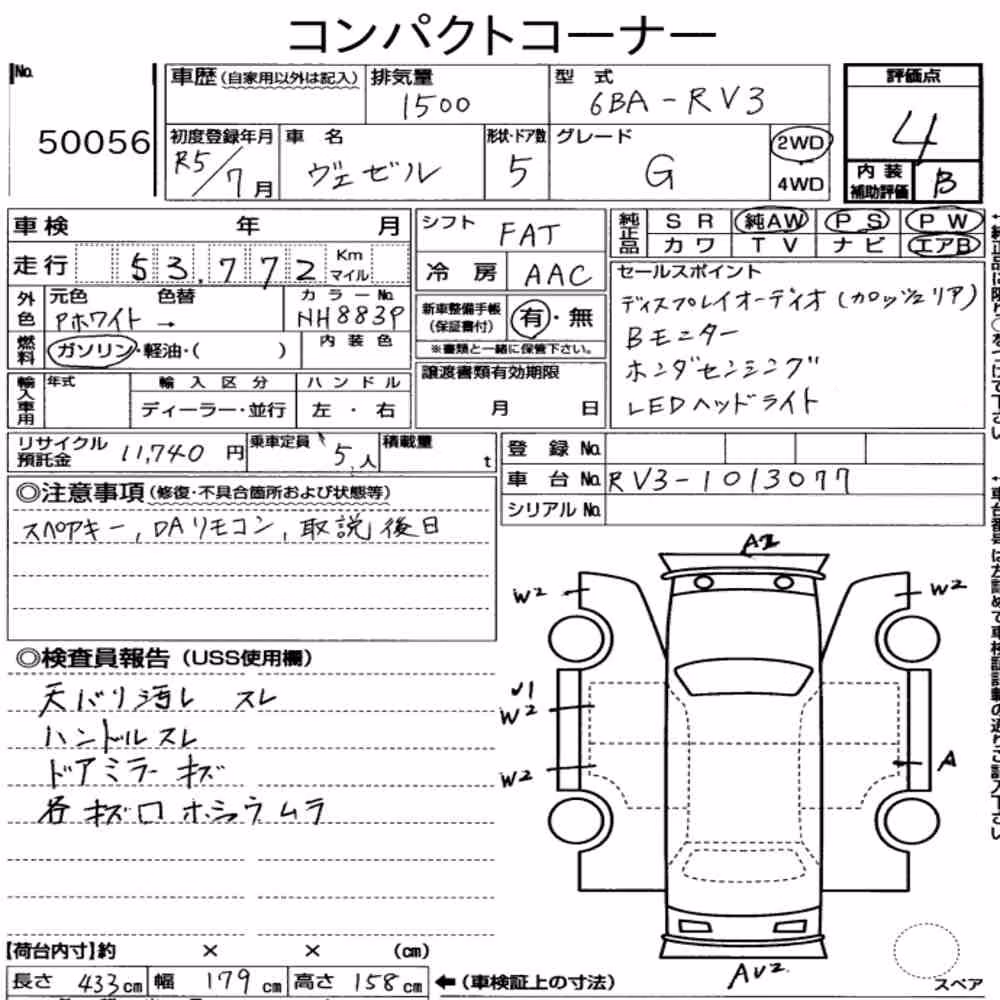 コンパクトコーナー
No. 50056
車歴(自家用以外は記入)
排気量 1500
型式 6BA-RV3
評価点 4
初度登録年月 R5/7月
車名 ヴェゼル
形状・ドア数 5
グレード G
2WD
4WD
内装補助評価 B
車検 年 月
シフト FAT
純正品 SR 純AW PS PW
カワ TV ナビ エアB
走行 53,772 Km マイル
冷房 AAC
セールスポイント
ディスプレイオーディオ(カロッツェリア)
Bモニター
ホンダセンシング
LEDヘッドライト
外色 元色 色替 カラーNo.
Pホワイト → NH883P
新車整備手帳(保証書付) 有・無
※書類と一緒に保管下さい。
燃料 ガソリン・軽油・( )
内装色
譲渡書類有効期限
月 日
輸入車用 年式 輸入区分 ハンドル
ディーラー・並行 左・右
リサイクル預託金 11,740円
乗車定員 5人
積載量 t
登録No.
車台No. RV3-1013077
シリアルNo.
◎注意事項(修復・不具合箇所および状態等)
スペアキー,DAリモコン,取説後日
◎検査員報告(USS使用欄)
天バリ汚レ スレ
ハンドルスレ
ドアミラーキズ
各キズ凹 ホシュウムラ
W2
W2
W2
A
AV2
【荷台内寸】約 × × (cm)
長さ 433cm 幅 179cm 高さ 158cm ←(車検証上の寸法)
スペア